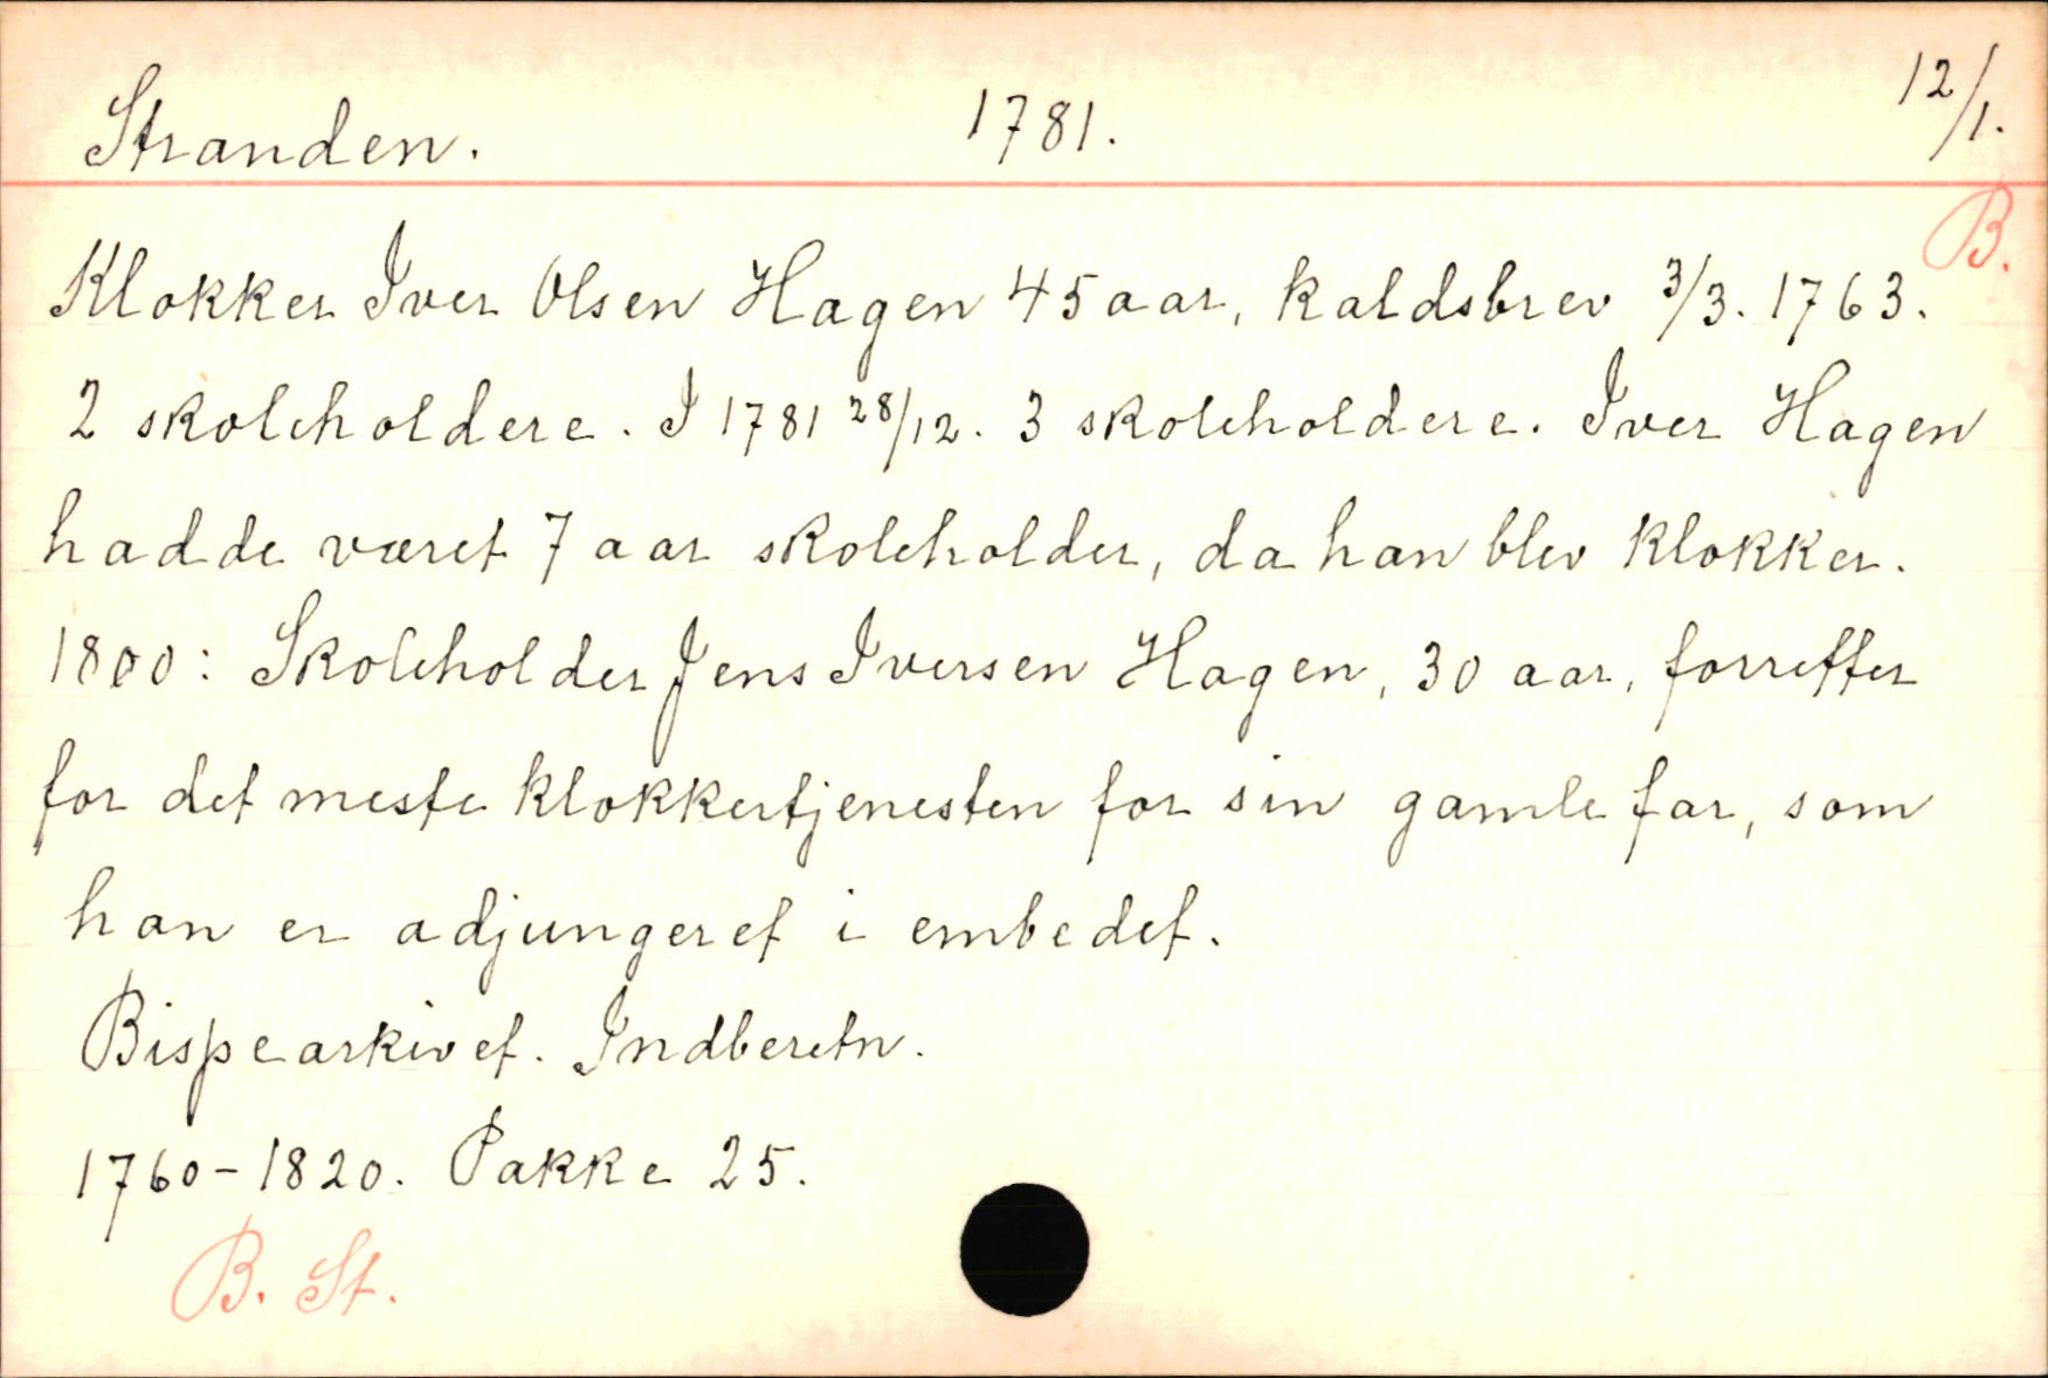 Stranden. 1781. 12/1.
B.
Klokker Iver Olsen Hagen 45 aar, kaldsbrev 3/3. 1763.
2 skoleholdere. I 1781 28/12. 3 skoleholdere. Iver Hagen
hadde været 7 aar skoleholder, da han blev klokker.
1800: Skoleholder Jens Iversen Hagen, 30 aar, forretter
for det meste klokkertjenesten for sin gamle far, som
han er adjungeret i embedet.
Bispearkivet. Indberetn.
1760-1820. Pakke 25.
B. St.